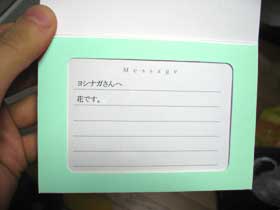 Message
ヨシナガさんへ
花です。